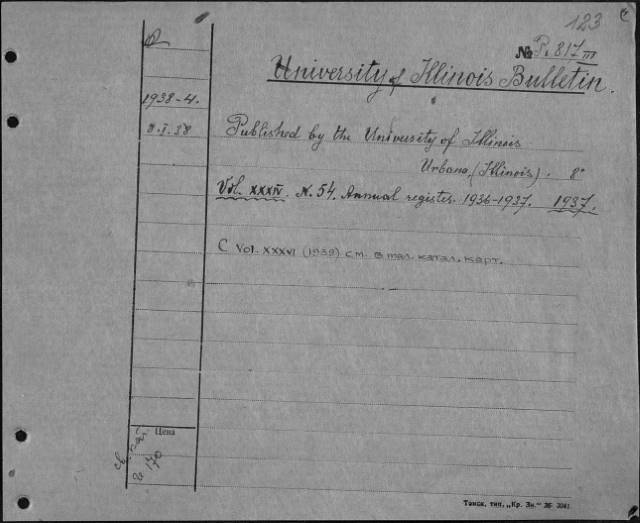 123
№ P. 817 III
University of Illinois Bulletin.
1938-4.
8.I.38
Published by the University of Illinois
Urbana, (Illinois). 8°
Vol. XXXIV. N. 54. Annual register. 1936-1937. 1937.
С Vol. XXXVI (1939) см. в мал. катал. карт.
Цена
Томск. тип. „Кр. Зн."